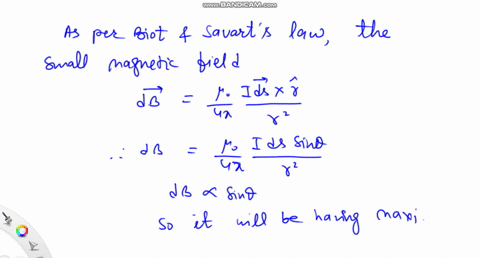 www.BANDICAM.com
As per Biot & Savart's law, the
small magnetic field
$\vec{dB} = \frac{\mu_0}{4\pi} \frac{I \vec{ds} \times \hat{r}}{r^2}$
$\therefore dB = \frac{\mu_0}{4\pi} \frac{I ds \sin\theta}{r^2}$
$dB \propto \sin\theta$
So it will be having maxi